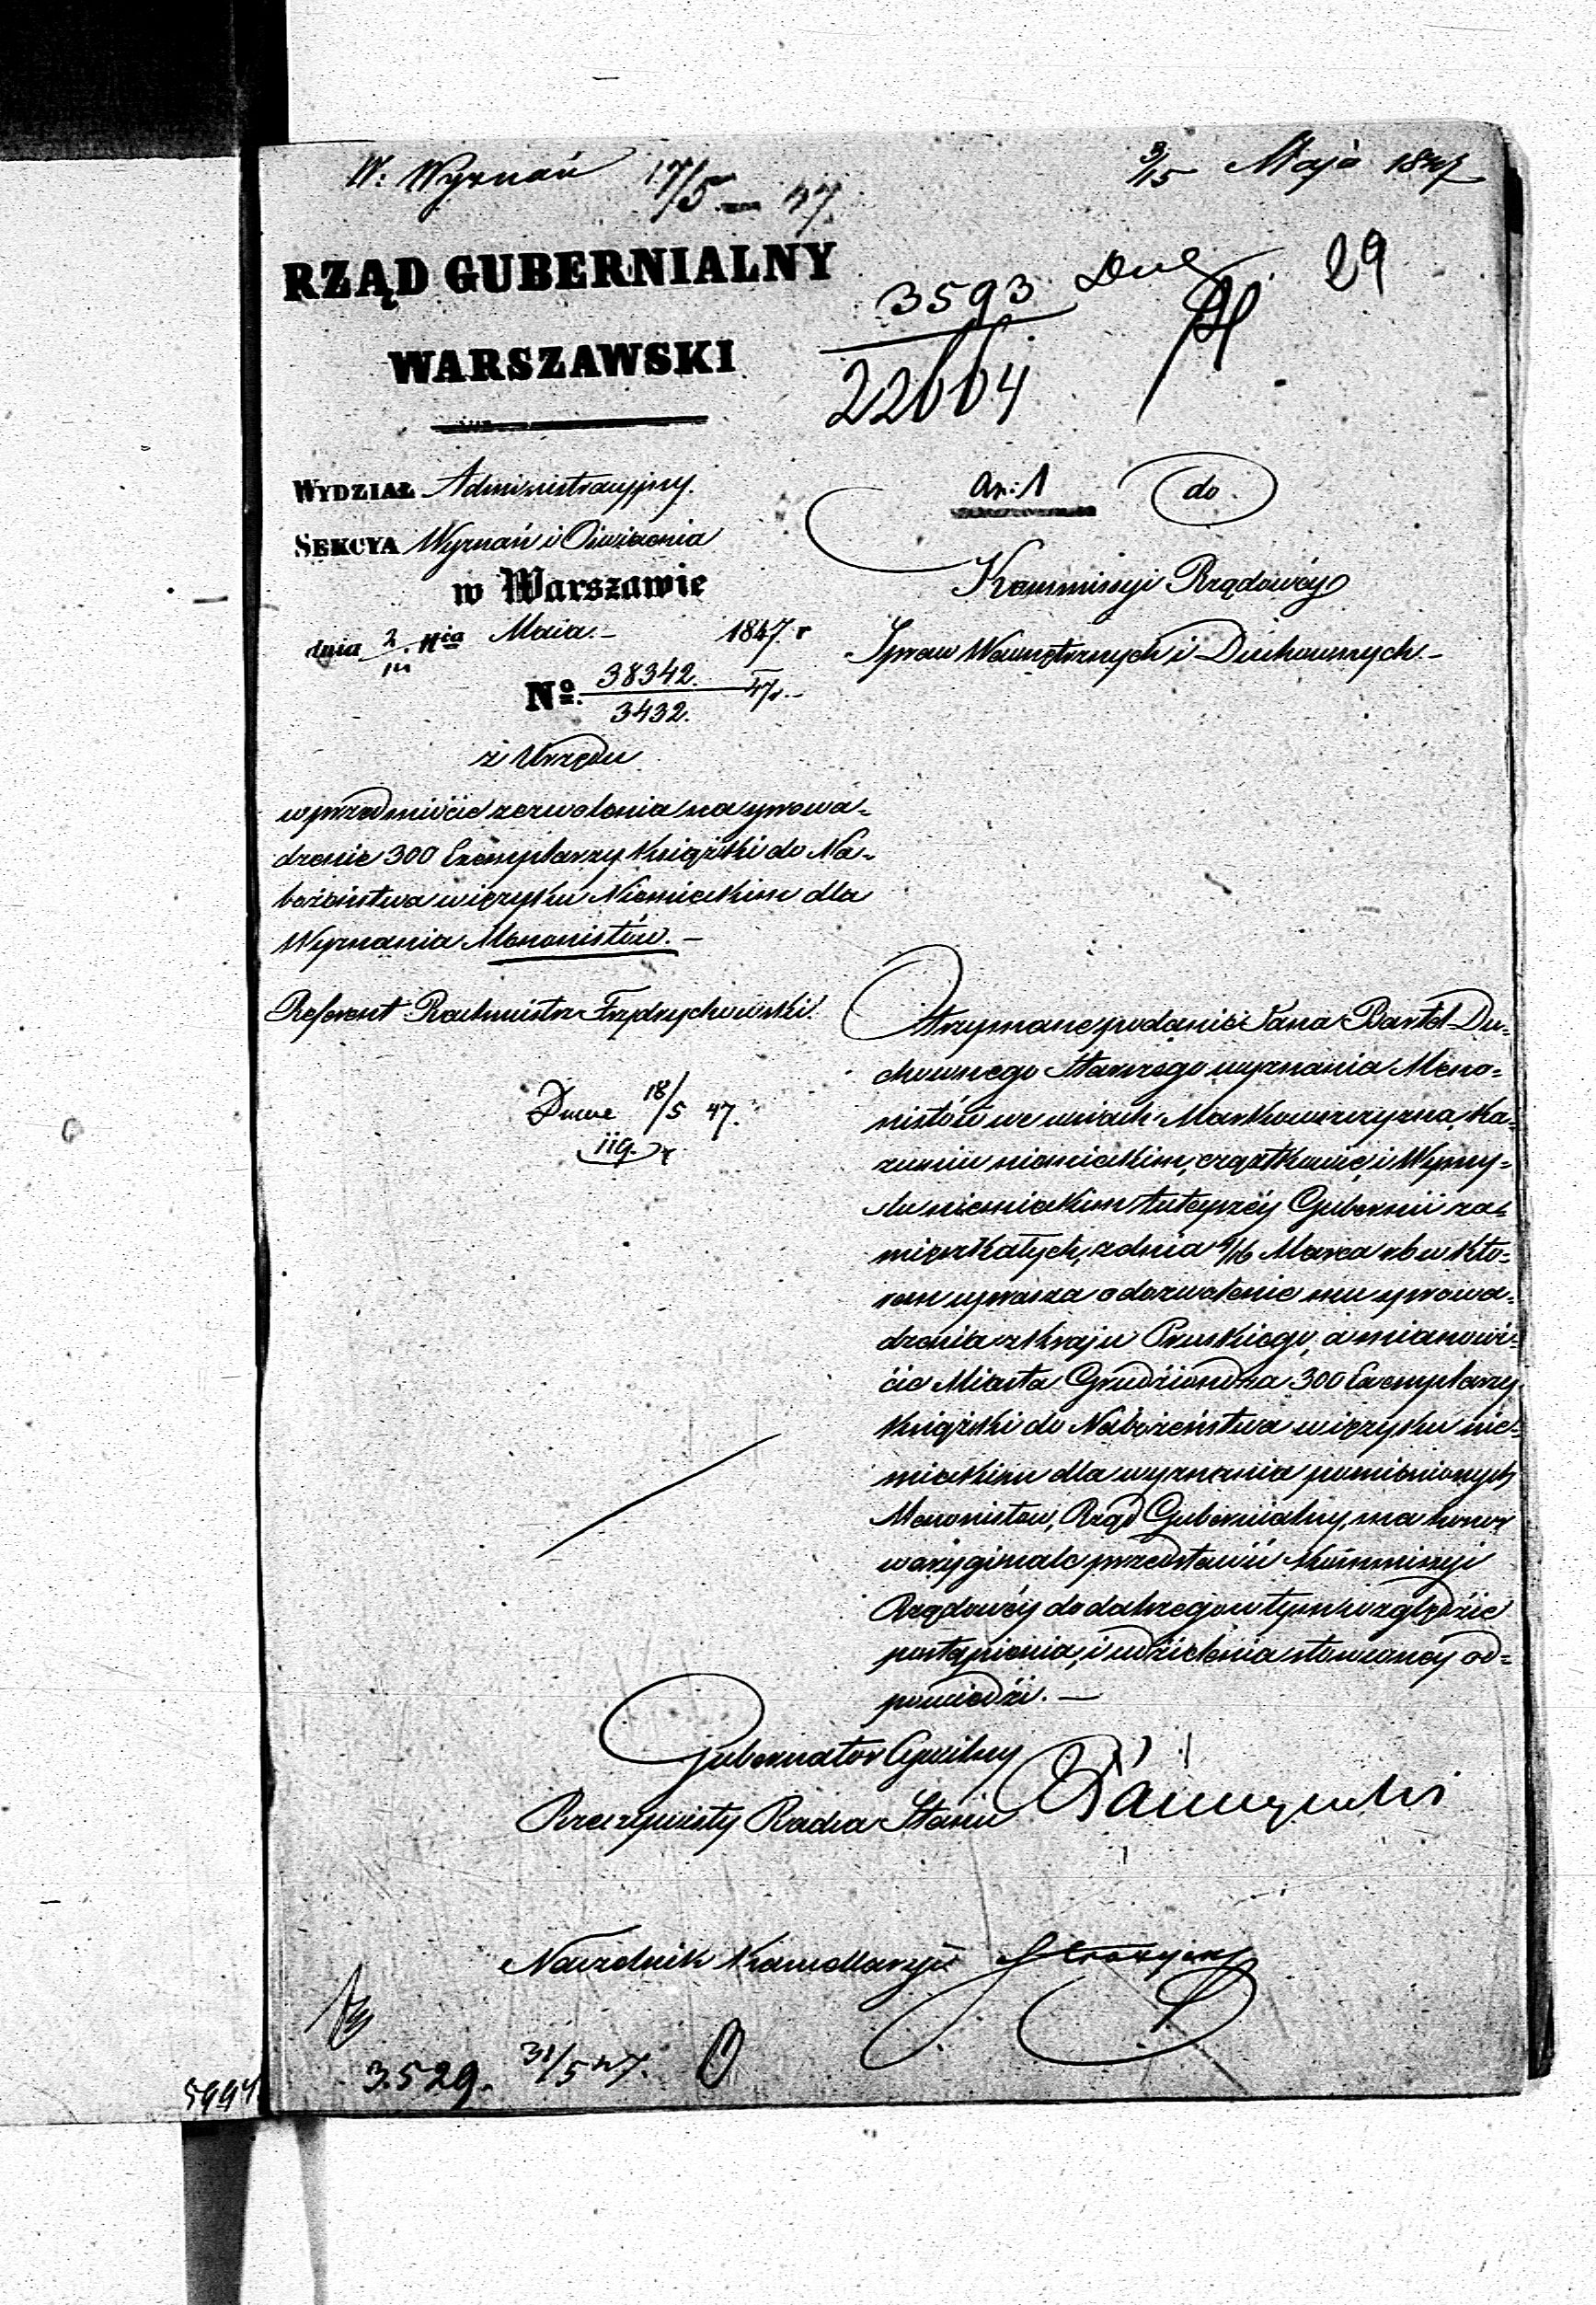 W: Wyznań 17/5 – 47.
3/15 Maja 1847
29
RZĄD GUBERNIALNY
WARSZAWSKI
3593
22664
WYDZIAŁ Administracyjny.
SEKCYA Wyznań i Oświecenia
w Warszawie
dnia 2/14 Maia 1847. r
No. 38342./3432. 47r.
z Urzędu
w przedmiocie zezwolenia na sprowa-
dzenie 300 Exemplarzy Książki do Na-
bożeństwa w języku Niemieckim dla
Wyznania Menonistów. –
Referent Rachmistrz Frydrychowski.
18/5 47.
an: 1 do
Kommissyi Rządowéy
Spraw Wewnętrznych i Duchownych. –
Otrzymane podanie Jana Bartel Du-
chownego Starszego wyznania Meno-
nistów we wsiach Markowszczyzna, Ka-
zuniu niemieckim, cząstkowie i Wymy-
ślu niemieckim tuteyszéy Gubernii za-
mieszkałych, z dnia 4/16 Marca r.b w któ-
rem uprasza o dozwolenie mu sprowa-
dzenia z kraju Pruskiego, a mianowi-
cie Miasta Grudziondza 300 Exemplarzy
książki do Nabożeństwa w języku nie-
mieckim dla wyznania pomienionych
Menonistów, Rząd Gubernialny, ma honor
w oryginale przedstawić Kommissyi
Rządowéy do dalszego w tym względzie
postąpienia, i udzielenia stosownéy od-
powiedzi. –
Gubernator Cywilny
Rzeczywisty Radca Stanu
Naczelnik Kancellaryi
3.529. 31/5 47.